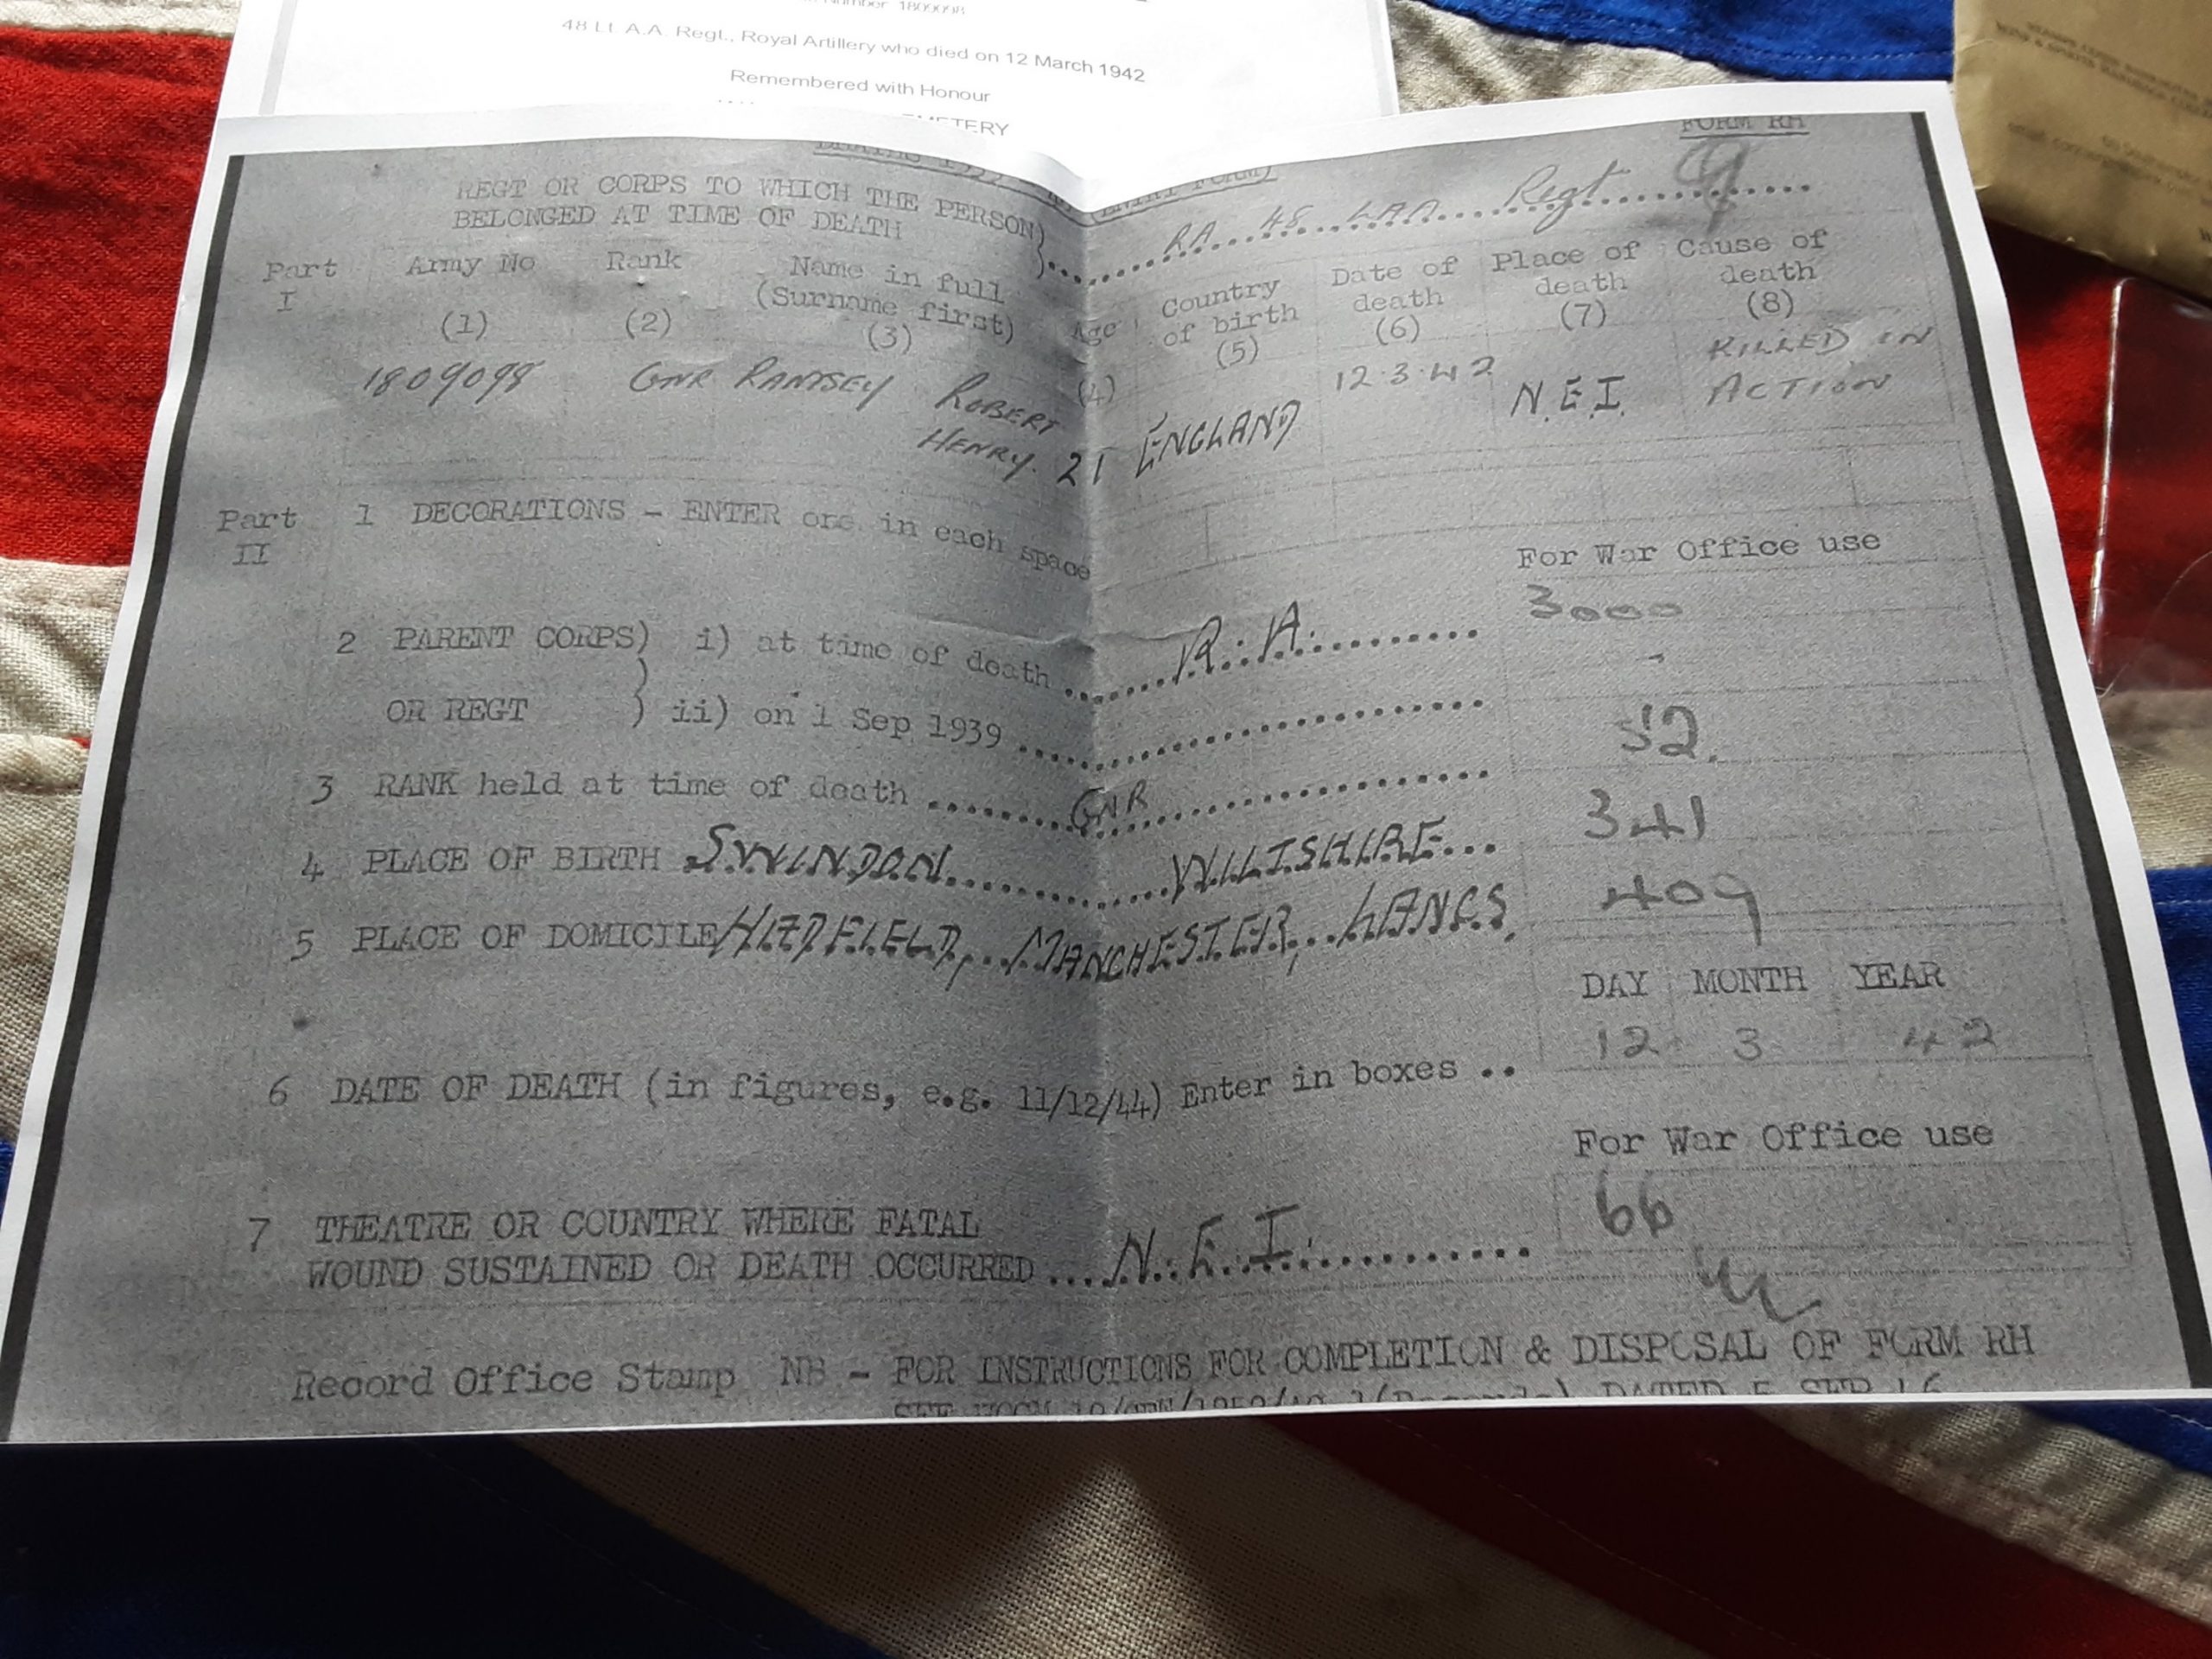 Number 1809098
48 Lt. A.A. Regt., Royal Artillery who died on 12 March 1942
Remembered with Honour
METERY
FORM RH
(ENTRY FORM)
9
REGT OR CORPS TO WHICH THE PERSON)
BELONGED AT TIME OF DEATH )..... RA 48 LAA Regt
Part I
Army No (1) Rank (2) Name in full (Surname first) (3) Age (4) Country of birth (5) Date of death (6) Place of death (7) Cause of death (8)
1809098 GNR RAMSEY ROBERT HENRY. 21 ENGLAND 12.3.42 N.E.I. KILLED IN ACTION
Part II
1 DECORATIONS - ENTER one in each space
For War Office use
2 PARENT CORPS) i) at time of death ..... R.A. ..... 3000
OR REGT ) ii) on 1 Sep 1939 ..... -
52.
3 RANK held at time of death ..... GNR ..... 341
4 PLACE OF BIRTH SWINDON ..... WILTSHIRE... 409
5 PLACE OF DOMICILE HADFIELD, MANCHESTER, LANCS.
DAY MONTH YEAR
12 3 42
6 DATE OF DEATH (in figures, e.g. 11/12/44) Enter in boxes ..
For War Office use
7 THEATRE OR COUNTRY WHERE FATAL
WOUND SUSTAINED OR DEATH OCCURRED ... N.E.I. ..... 66
Record Office Stamp NB - FOR INSTRUCTIONS FOR COMPLETION & DISPOSAL OF FORM RH
SEE (Records) DATED 5 SEP